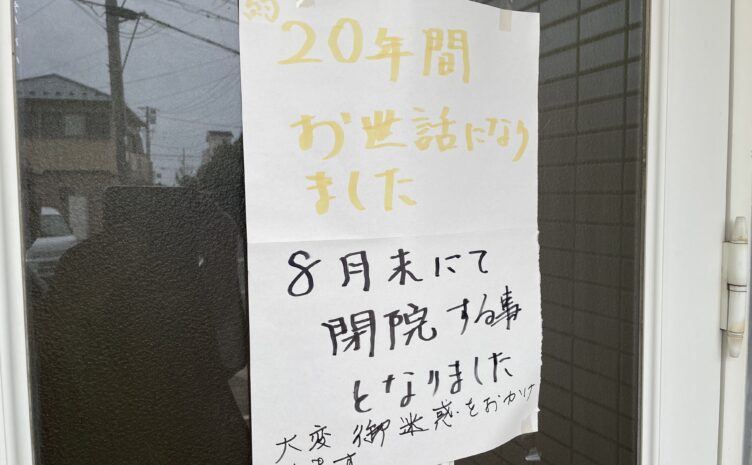 約
20年間
お世話になり
ました
8月末にて
閉院する事
となりました
大変御迷惑をおかけ